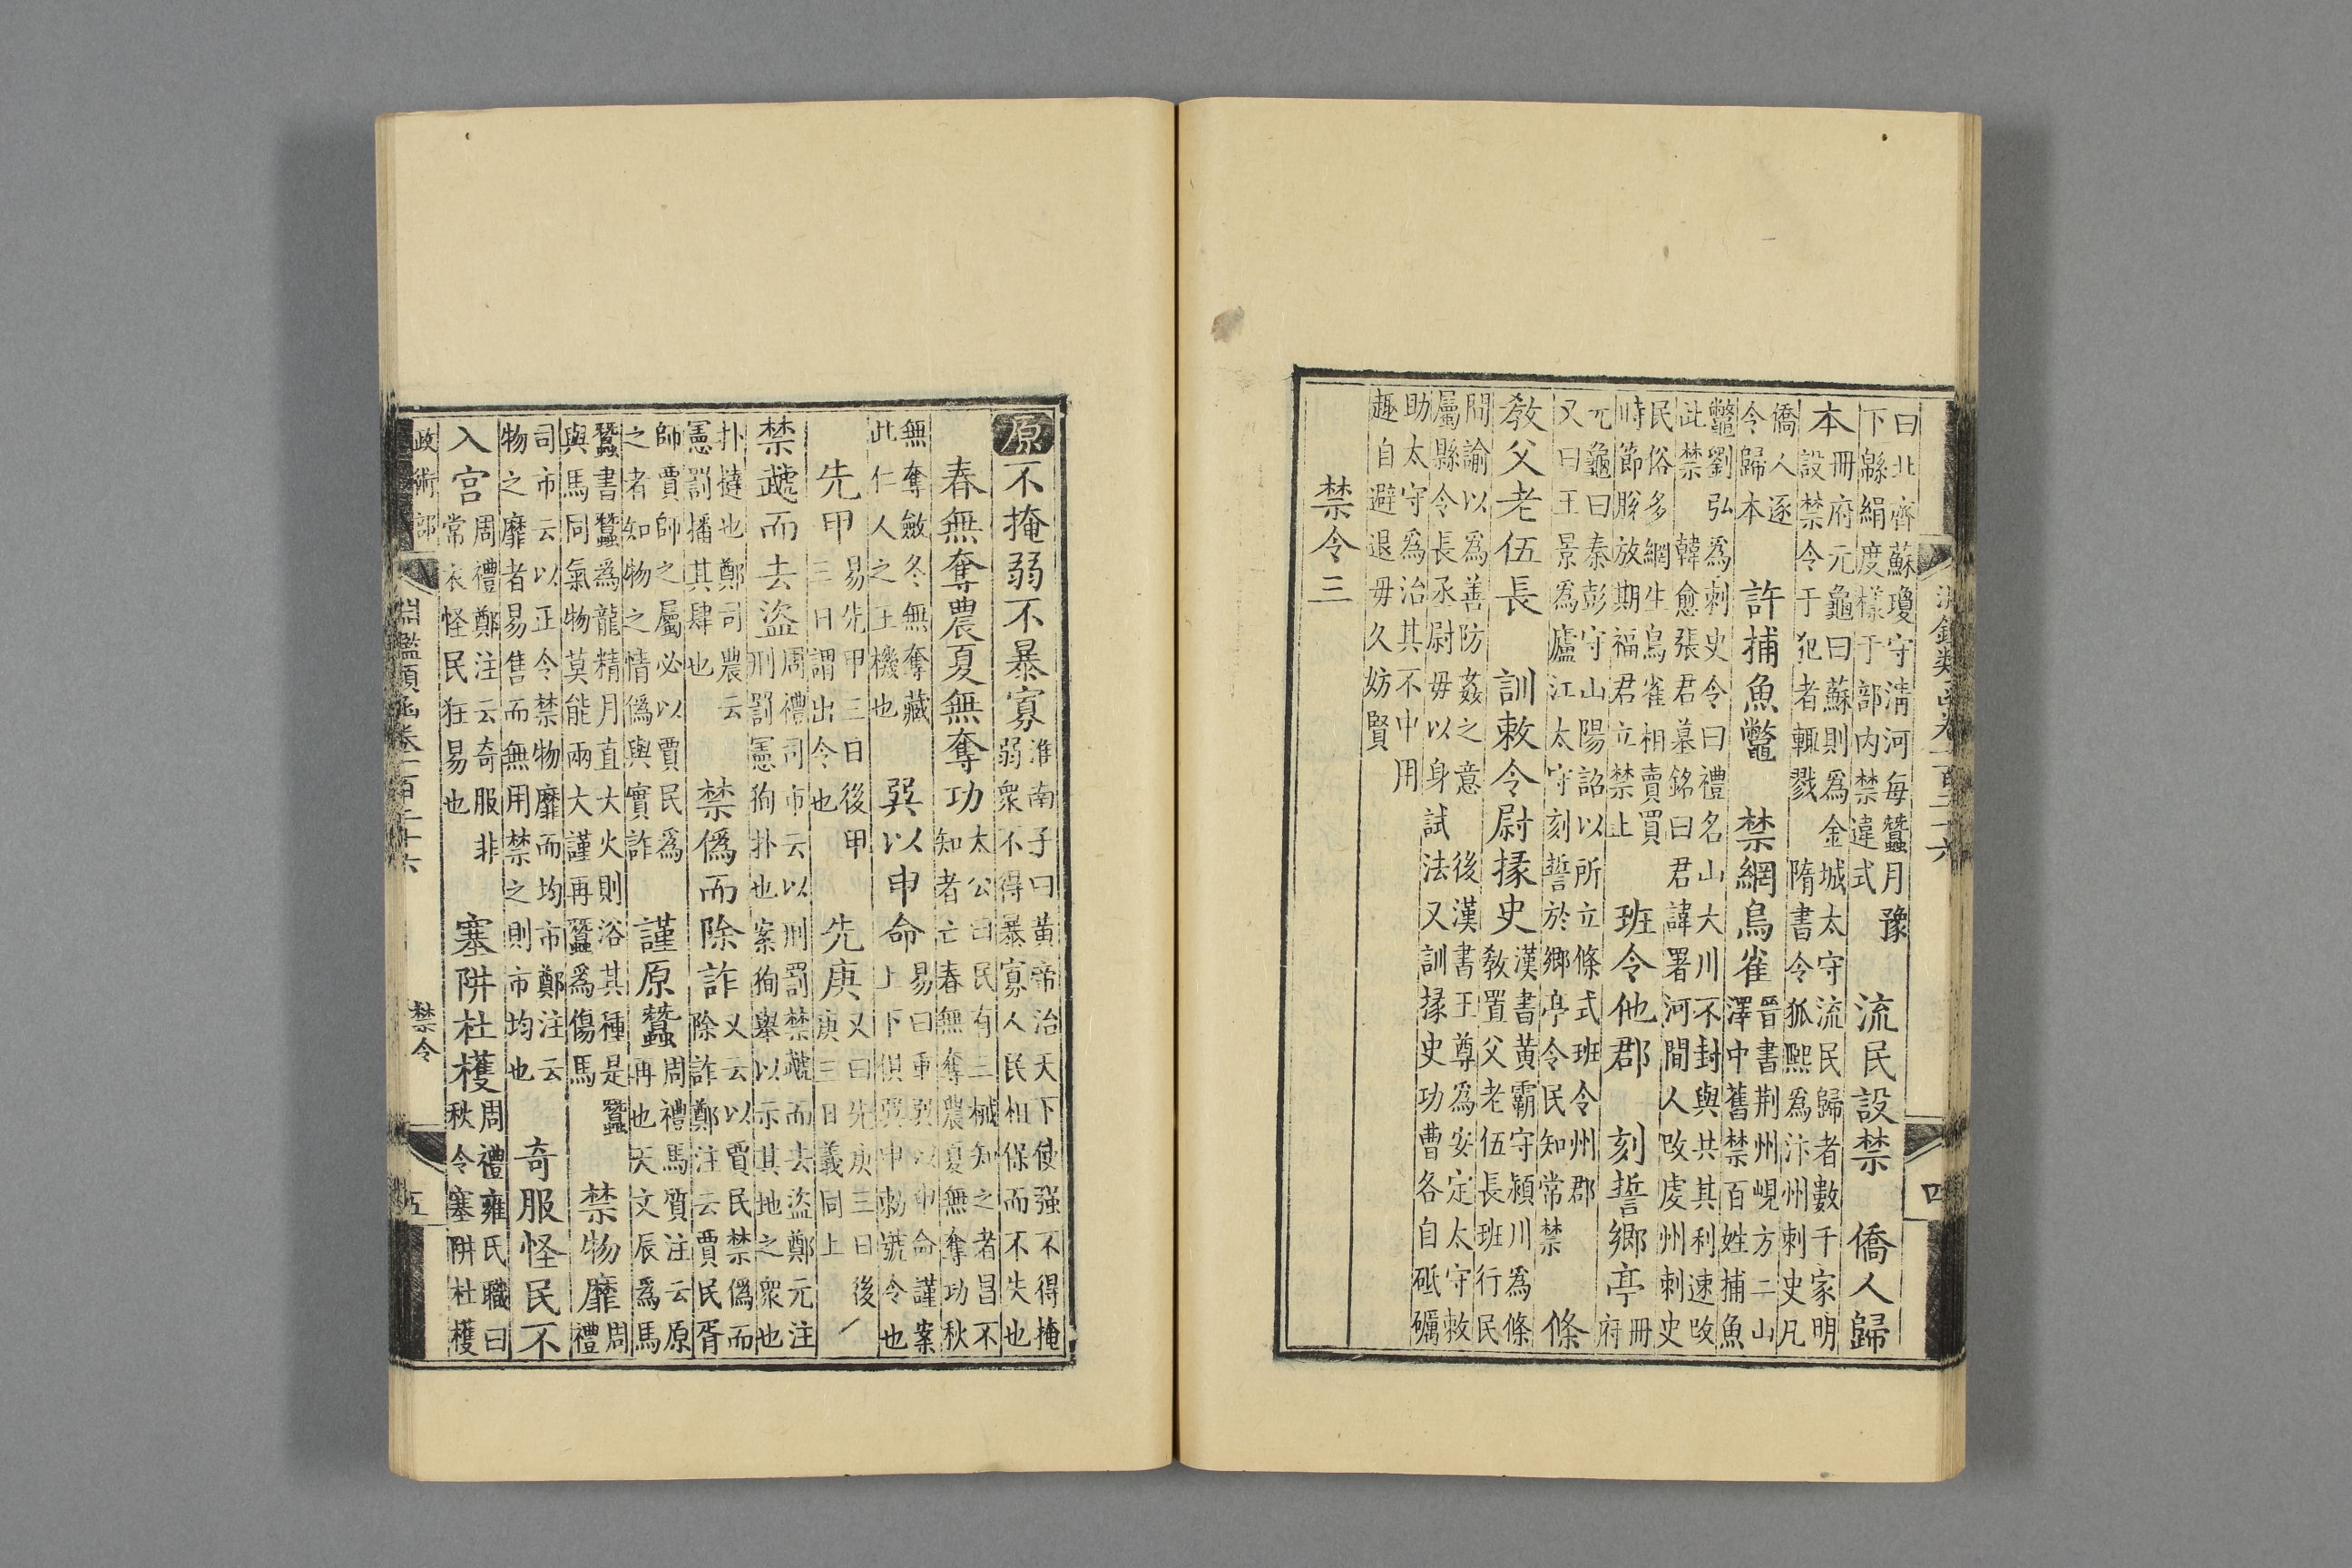 曰北齊蘇瓊守清河每蠶月豫
下緜絹度樣于部內禁違式
流民設禁　僑人歸
本
冊府元龜曰蘇則爲金城太守流民歸者數千家明
設禁令于犯者輒戮　隋書令狐熙爲汴州刺史凡
僑人逐
令歸本
許捕魚鼈　禁網鳥雀
晉書荆州峴方二山
澤中舊禁百姓捕魚
鼈劉弘爲刺史令曰禮名山大川不封與共其利速改
此禁　韓愈張君墓銘曰君諱署河間人改虔州刺史
民俗多網生鳥雀相賣買
時節放期福君立禁止
班令他郡　刻誓鄉亭
冊
府
元龜曰秦彭守山陽詔以所立條式班令州郡
又曰王景爲廬江太守刻誓於鄉亭令民知常禁
條
教父老伍長　訓敕令尉掾史
漢書黃霸守潁川爲條
教置父老伍長班行民
問諭以爲善防姦之意　後漢書王尊爲安定太守敕
屬縣令長丞尉毋以身試法又訓掾史功曹各自砥礪
助太守爲治其不中用
趣自避退毋久妨賢
禁令三
四
原不掩弱不暴寡
淮南子曰黃帝治天下使强不得掩
弱衆不得暴寡人民相保而不失也
春無奪農夏無奪功
太公曰民有三械知之者昌不
知者亡春無奪農夏無奪功秋
無奪斂冬無奪藏
此仁人之王機也
巽以申命
易曰重巽以申命謹案
上下俱巽申勅號令也
先甲
易先甲三日後甲
三日謂出令也
先庚
又曰先庚三日後
庚三日義同上
禁虣而去盜
周禮司市云以刑罰禁虣而去盜鄭元注
刑罰憲狥扑也案狥舉以示其地之衆也
扑撻也鄭司農云
憲罰播其肆也
禁僞而除詐
又云以賈民禁僞而
除詐鄭注云賈民胥
師賈師之屬必以賈民爲
之者知物之情僞與實詐
謹原蠶
周禮馬質注云原
再也天文辰爲馬
蠶書蠶爲龍精月直大火則浴其種是蠶
與馬同氣物莫能兩大謹再蠶爲傷馬
禁物靡
周
禮
司市云以正令禁物靡而均市鄭注云
物之靡者易售而無用禁之則市均也
奇服怪民不
入宮
周禮鄭注云奇服非
常衣怪民狂易也
塞阱杜擭
周禮雍氏職曰
秋令塞阱杜擭
政術部
淵鑑類函卷一百二十六
禁令
五